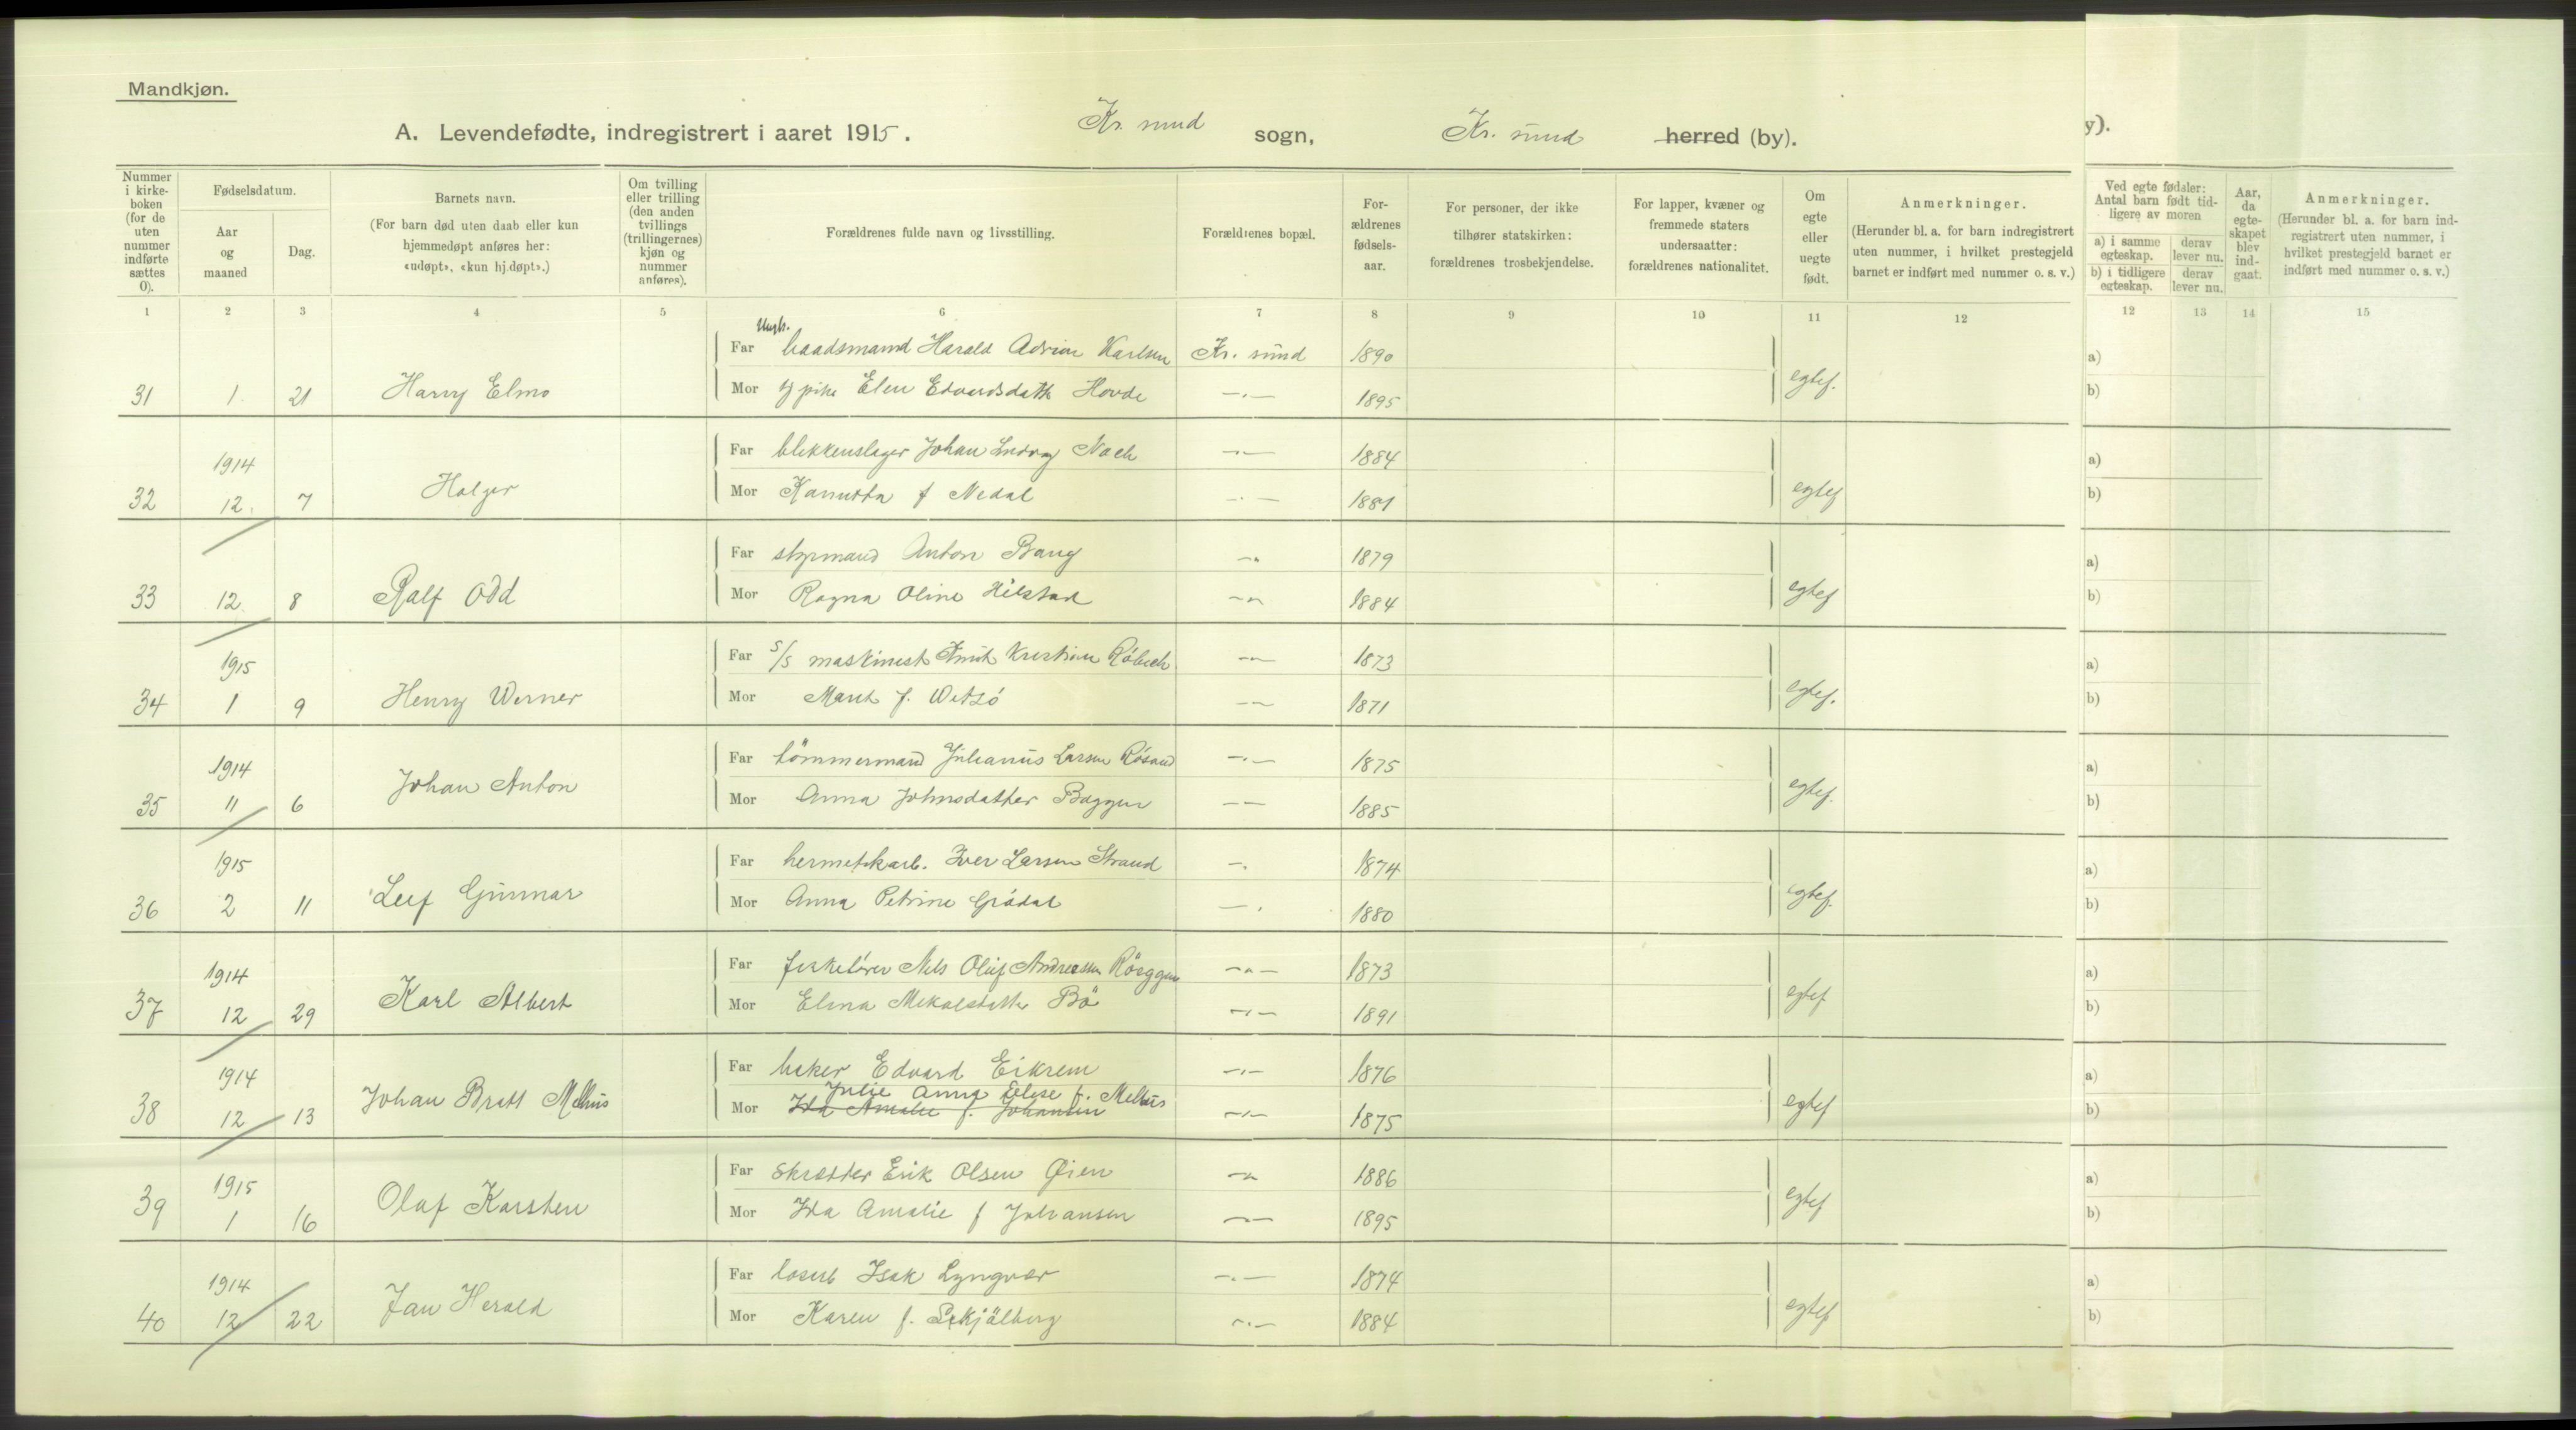 Mandkjøn.
A. Levendefødte, indregistrert i aaret 1915. Kr. sund sogn, Kr. sund herred (by).
y).
Nummer i kirkeboken (for de uten nummer indførte sættes 0).
Fødselsdatum.
Aar og maaned
Dag.
Barnets navn.
(For barn død uten daab eller kun hjemmedøpt anføres her: «udøpt», «kun hj.døpt».)
Om tvilling eller trilling (den anden tvillings (trillingernes) kjøn og nummer anføres).
Forældrenes fulde navn og livsstilling.
Forældrenes bopæl.
Forældrenes fødselsaar.
For personer, der ikke tilhører statskirken: forældrenes trosbekjendelse.
For lapper, kvæner og fremmede staters undersaatter: forældrenes nationalitet.
Om egte eller uegte født.
Anmerkninger.
(Herunder bl. a. for barn indregistrert uten nummer, i hvilket prestegjeld barnet er indført med nummer o. s. v.)
Ved egte fødsler: Antal barn født tidligere av moren
a) i samme egteskap. derav lever nu.
b) i tidligere egteskap. derav lever nu.
Aar, da egteskapet blev indgaat.
Anmerkninger.
(Herunder bl. a. for barn indregistrert uten nummer, i hvilket prestegjeld barnet er indført med nummer o. s. v.)
1 2 3 4 5 6 7 8 9 10 11 12 12 13 14 15
Ungk.
Far baadsmand Harald Adrian Karlsen Kr. sund 1890 a)
31 1 21 Harry Elmo Mor pike Elen Edvardsdatter Hovde —"— 1895 egtef. b)
Far blikkenslager Johan Ludvig —"— 1884 a)
1914
32 12. 7 Holger Mor f Nedal —"— 1881 egtef b)
Far styrmand Anton Bang —"— 1879 a)
33 12. 8 Ralf Odd Mor Ragna Oline Hilstad —"— 1884 egtef b)
Far S/S maskinist Knut Kristian —"— 1873 a)
1915
34 1 9 Henry Werner Mor Marit f. —"— 1871 egtef. b)
Far tömmermand Julianus Larsen Rösand —"— 1875 a)
1914
35 11 6 Johan Anton Mor Anna Johnsdatter Baggen —"— 1885 egtef. b)
Far hermetikarb. Iver Larsen Strand —"— 1874 a)
1915
36 2 11 Leif Gunnar Mor Anna Petrine Grödal —"— 1880 egtef. b)
Far Nils Oluf Andreassen Röeggen —"— 1873 a)
1914
37 12 29 Karl Albert Mor Elina Mikalsdatter Bö —"— 1891 egtef b)
Far baker Edvard Eikrem —"— 1876 a)
1914
Julie Anna Elise f. Melhus
38 12 13 Johan Bratt Melhus Mor Ida Amalie f. Johansen —"— 1875 egtef b)
Far skrædder Erik Olsen Øien —"— 1886 a)
1915
39 1 16 Olaf Karsten Mor Ida Amalie f Johansen —"— 1895 egtef b)
Far losarb Isak Lyngvær —"— 1874 a)
1914
40 12 22 Jan Herald Mor Karen f. —"— 1884 egtef b)